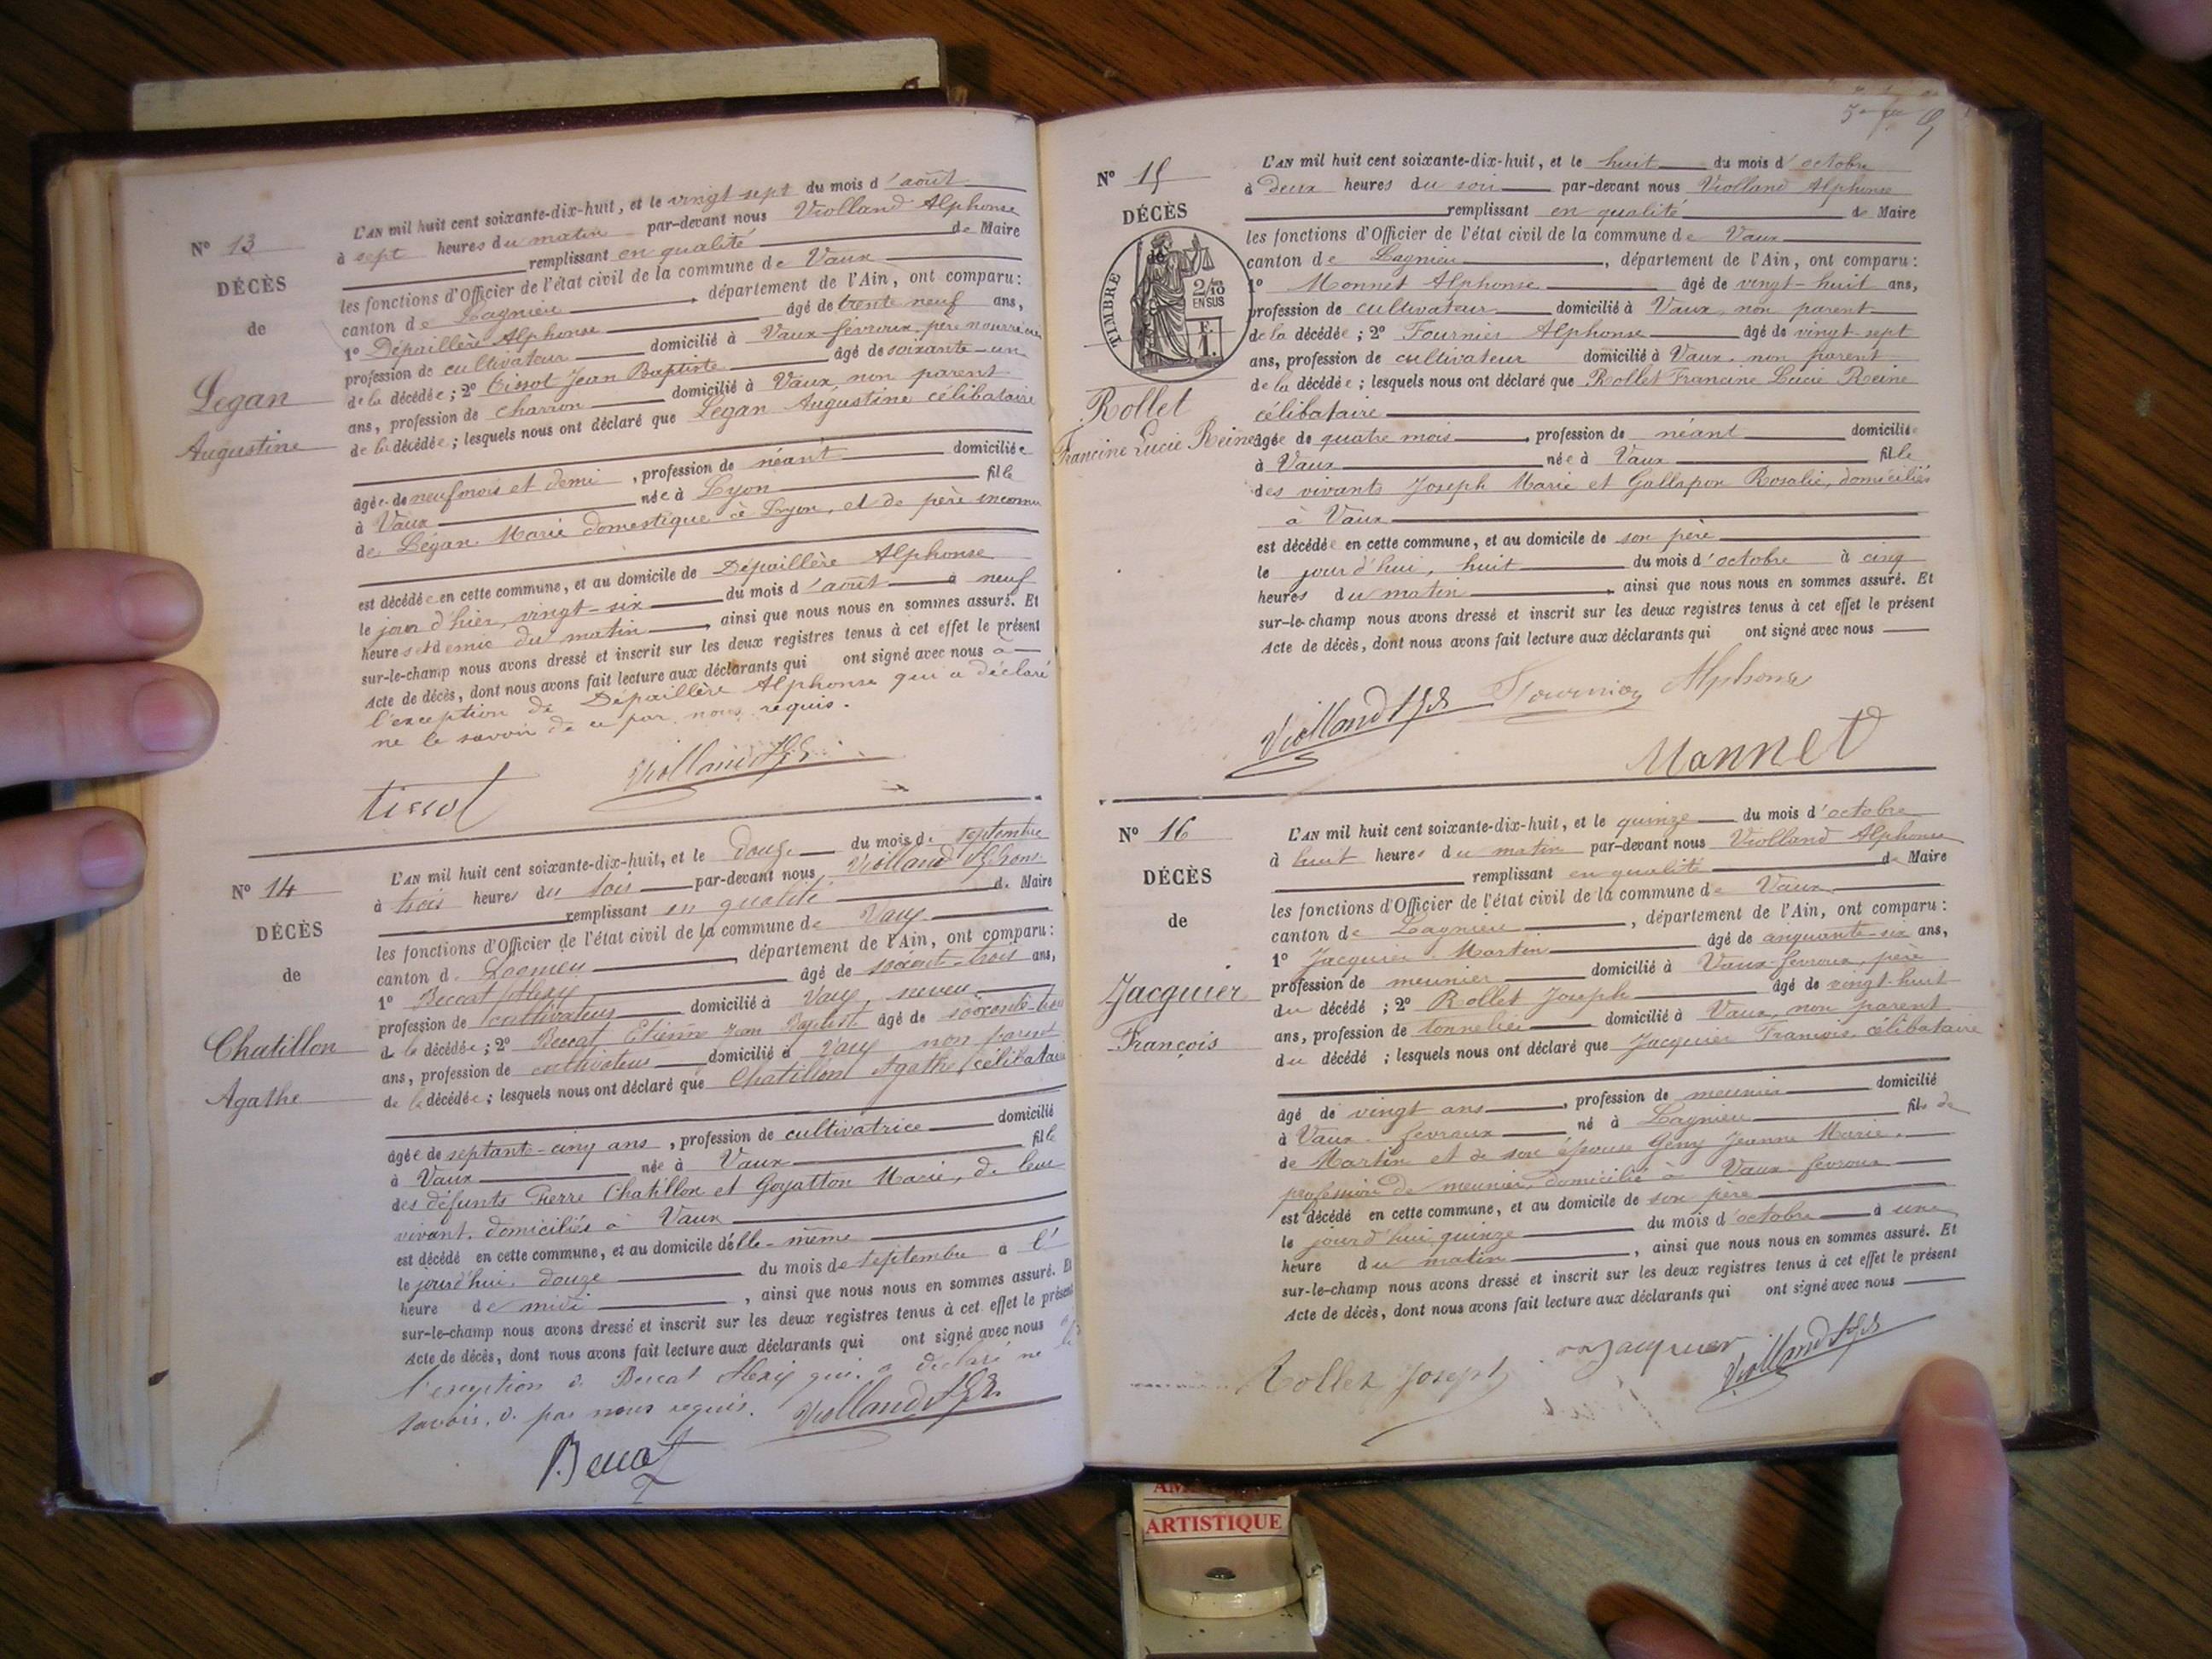 N° 13
DÉCÈS
de
Legan
Augustine
L'AN mil huit cent soixante-dix-huit, et le vingt sept du mois d'août
à sept heures du matin par-devant nous Violland Alphonse
remplissant en qualité de Maire
les fonctions d'Officier de l'état civil de la commune de Vaux
canton de Lagnieu, département de l'Ain, ont comparu:
1° Dépaillère Alphonse âgé de trente neuf ans,
profession de cultivateur domicilié à Vaux-févroux, père nourricier
de la décédée; 2° Tissot Jean Baptiste âgé de soixante-un
ans, profession de charron domicilié à Vaux, non parent
de la décédée; lesquels nous ont déclaré que Legan Augustine célibataire
âgée de neuf mois et demi, profession de néant domiciliée
à Vaux née à Lyon fille
de Légan Marie domestique à Lyon, et de père inconnu
est décédée en cette commune, et au domicile de Dépaillère Alphonse
le jour d'hier, vingt-six du mois d'août à neuf
heures et demie du matin, ainsi que nous nous en sommes assuré. Et
sur-le-champ nous avons dressé et inscrit sur les deux registres tenus à cet effet le présent
Acte de décès, dont nous avons fait lecture aux déclarants qui ont signé avec nous à
l'exception de Dépaillère Alphonse qui a déclaré
ne le savoir de ce par nous requis.
tissot Violland
N° 14
DÉCÈS
de
Chatillon
Agathe
L'AN mil huit cent soixante-dix-huit, et le douze du mois de septembre
à trois heures du soir par-devant nous Violland Alphonse
remplissant en qualité de Maire
les fonctions d'Officier de l'état civil de la commune de Vaux
canton de Lagnieu, département de l'Ain, ont comparu:
1° Beccat Alexis âgé de soixante-trois ans,
profession de cultivateur domicilié à Vaux, neveu
de la décédée; 2° Beccat Etienne Jean Baptiste âgé de soixante-trois
ans, profession de cultivateur domicilié à Vaux non parent
de la décédée; lesquels nous ont déclaré que Chatillon Agathe, célibataire
âgée de septante-cinq ans, profession de cultivatrice domicilié
à Vaux née à Vaux fille
des défunts Pierre Chatillon et Goyatton Marie, de leur
vivant, domiciliés à Vaux
est décédé en cette commune, et au domicile d'elle-même
le jourd'hui, douze du mois de septembre à l'
heure de midi, ainsi que nous nous en sommes assuré. Et
sur-le-champ nous avons dressé et inscrit sur les deux registres tenus à cet effet le présent
Acte de décès, dont nous avons fait lecture aux déclarants qui ont signé avec nous à
l'exception de Beccat Alexis qui a déclaré ne le
savoir, de par nous requis. Violland
Beccat
N° 15
DÉCÈS
TIMBRE
2/10
EN SUS
Rollet
Francine Lucie Reine
L'AN mil huit cent soixante-dix-huit, et le huit du mois d'octobre
à deux heures du soir par-devant nous Violland Alphonse
remplissant en qualité de Maire
les fonctions d'Officier de l'état civil de la commune de Vaux
canton de Lagnieu, département de l'Ain, ont comparu:
1° Monnet Alphonse âgé de vingt-huit ans,
profession de cultivateur domicilié à Vaux, non parent
de la décédée; 2° Fournier Alphonse âgé de vingt-sept
ans, profession de cultivateur domicilié à Vaux, non parent
de la décédée; lesquels nous ont déclaré que Rollet Francine Lucie Reine
célibataire
âgée de quatre mois, profession de néant domiciliée
à Vaux née à Vaux fille
des vivants Joseph Marie et Gallapon Rosalie, domiciliés
à Vaux
est décédée en cette commune, et au domicile de son père
le jourd'hui, huit du mois d'octobre à cinq
heures du matin, ainsi que nous nous en sommes assuré. Et
sur-le-champ nous avons dressé et inscrit sur les deux registres tenus à cet effet le présent
Acte de décès, dont nous avons fait lecture aux déclarants qui ont signé avec nous
Violland Fournier Alphonse
Monnet
N° 16
DÉCÈS
de
Jacquier
François
L'AN mil huit cent soixante-dix-huit, et le quinze du mois d'octobre
à huit heures du matin par-devant nous Violland Alphonse
remplissant en qualité de Maire
les fonctions d'Officier de l'état civil de la commune de Vaux
canton de Lagnieu, département de l'Ain, ont comparu:
1° Jacquier Martin âgé de cinquante-six ans,
profession de meunier domicilié à Vaux-févroux, père
du décédé; 2° Rollet Joseph âgé de vingt-huit
ans, profession de tonnelier domicilié à Vaux, non parent
du décédé; lesquels nous ont déclaré que Jacquier François, célibataire
âgé de vingt ans, profession de meunier domicilié
à Vaux-févroux né à Lagnieu fils de
de Martin et de son épouse Geny Jeanne Marie,
profession de meunier, domicilié à Vaux-févroux
est décédé en cette commune, et au domicile de son père
le jourd'hui quinze du mois d'octobre à une
heure du matin, ainsi que nous nous en sommes assuré. Et
sur-le-champ nous avons dressé et inscrit sur les deux registres tenus à cet effet le présent
Acte de décès, dont nous avons fait lecture aux déclarants qui ont signé avec nous
Rollet Joseph Jacquier Violland
ARTISTIQUE